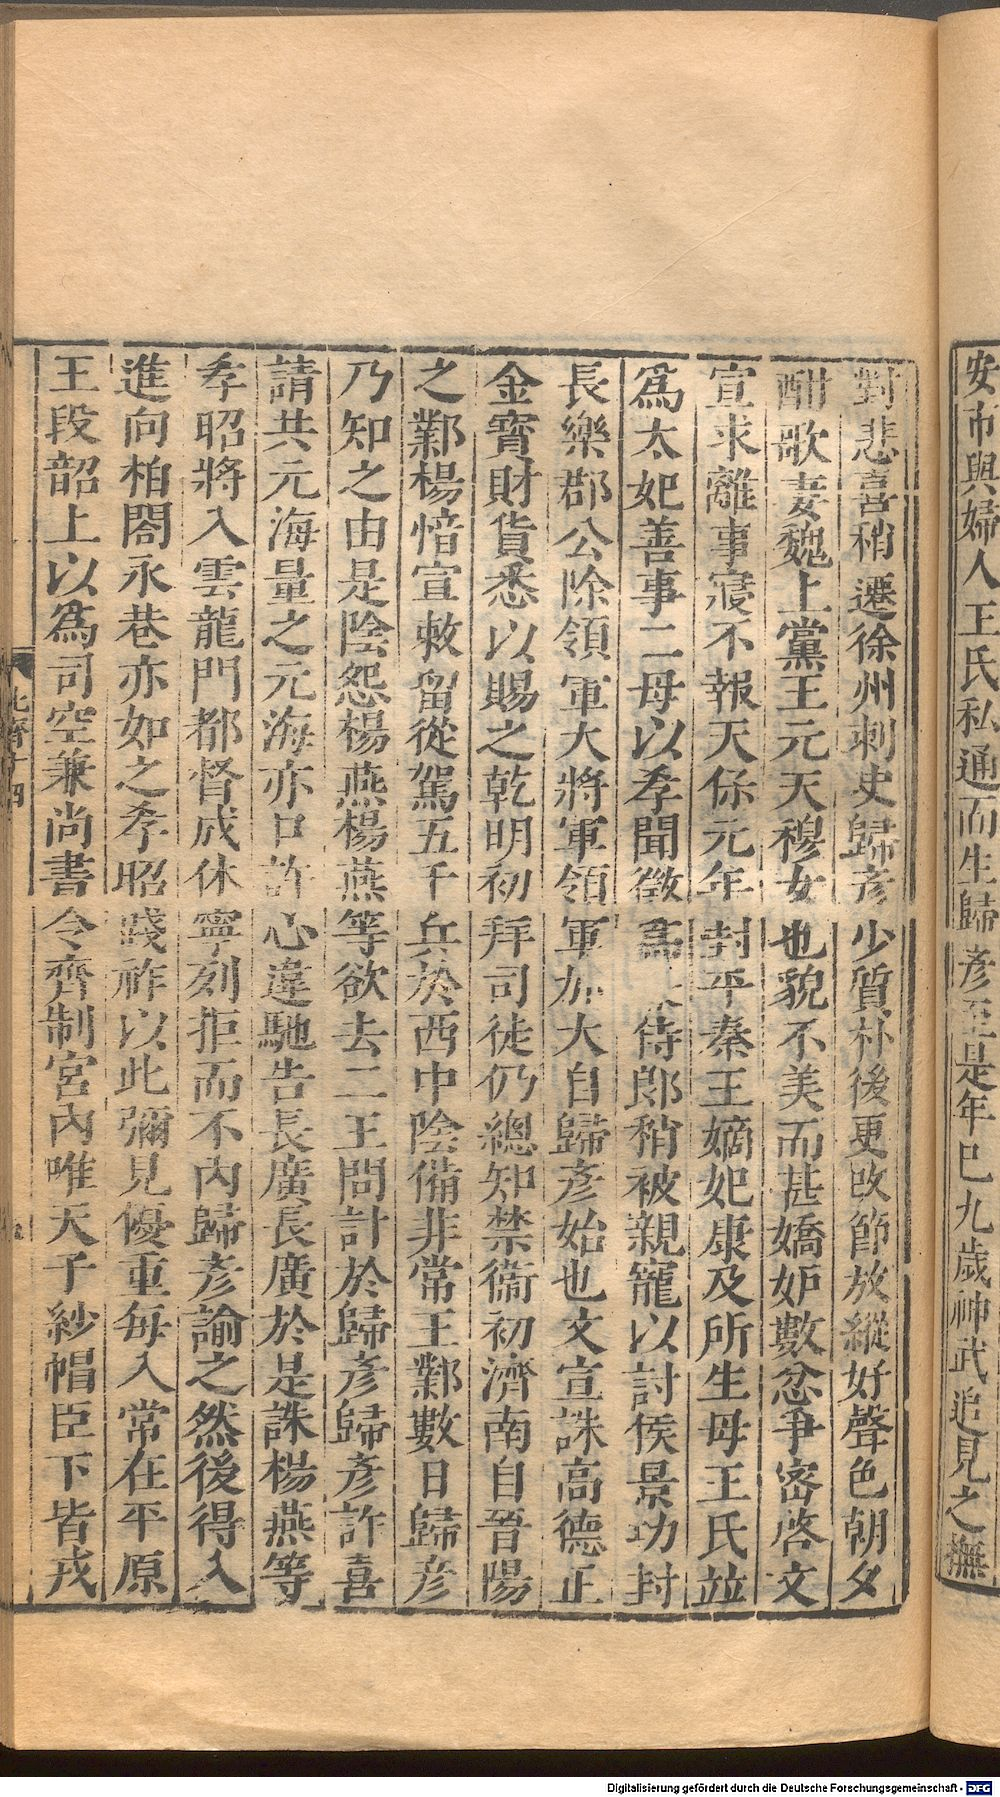 安市與婦人王氏私通而生歸彦至是年巳九歲神武追見之撫
對悲喜稍遷徐州刺史歸彦少質朴後更改節放縱好聲色朝夕
酣歌妻魏上黨王元天穆女也貌不美而甚嬌妒數忿爭密啓文
宣求離事寢不報天保元年封平秦王嫡妃康及所生母王氏竝
爲太妃善事二母以孝聞徵爲侍郎稍被親寵以討侯景功封
長樂郡公除領軍大將軍領軍加大自歸彦始也文宣誅高德正
金寳財貨悉以賜之乾明初拜司徒仍總知禁衞初濟南自晉陽
之鄴楊愔宣敕留從駕五千兵於西中陰備非常王鄴數日歸彦
乃知之由是陰怨楊燕楊燕等欲去二王問計於歸彦歸彦詐喜
請共元海量之元海亦口許心違馳告長廣長廣於是誅楊燕等
孝昭將入雲龍門都督成休寧列拒而不內歸彦諭之然後得入
進向柏閤永巷亦如之孝昭踐祚以此彌見優重每入常在平原
王段韶上以爲司空兼尚書令齊制宮內唯天子紗帽臣下皆戎
北齊十四
Digitalisierung gefördert durch die Deutsche Forschungsgemeinschaft - DFG